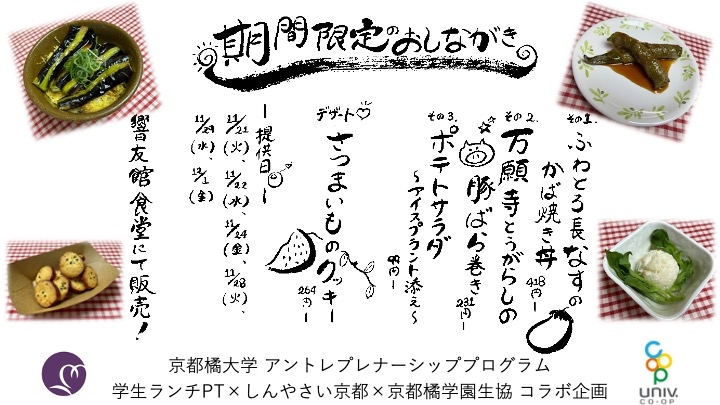 期間限定のおしながき
その1.
ふわとろ長なすの
かば焼き丼
418円ー
その2.
万願寺とうがらしの
豚ばら巻き
231円ー
その3.
ポテトサラダ
〜アイスプラント添え〜
99円ー
デザート♡
さつまいものクッキー
264円ー
ー提供日ー
11/21(火)、11/22(水)、11/24(金)、11/28(火)、
11/29(水)、12/1(金)
響友館食堂にて販売!
京都橘大学 アントレプレナーシッププログラム
学生ランチPT×しんやさい京都×京都橘学園生協 コラボ企画
coop
UNIV.
CO-OP